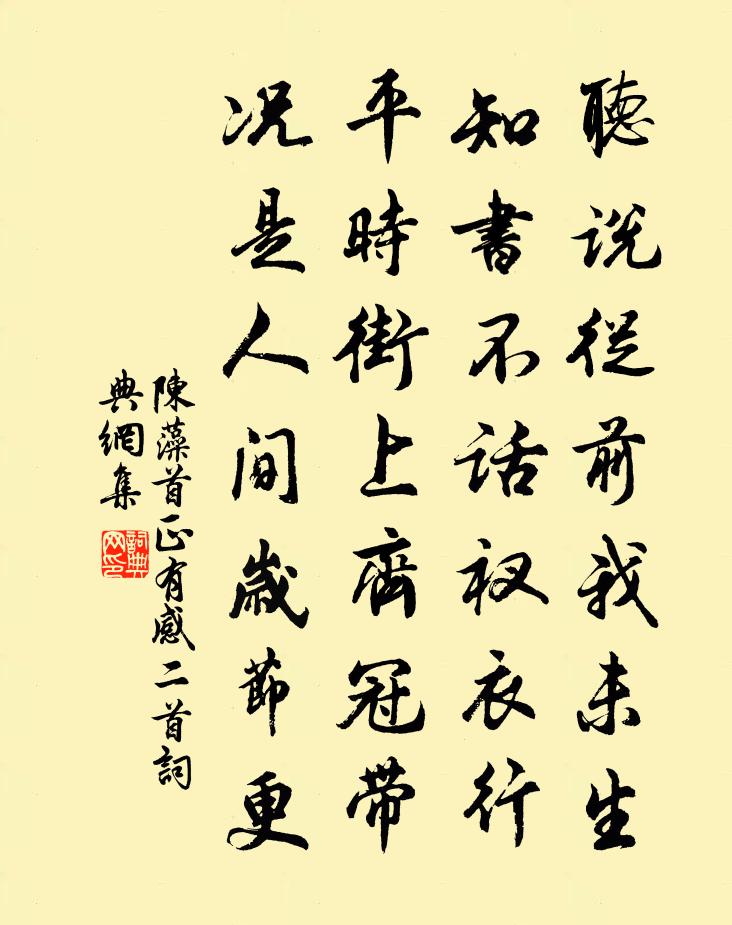 聽説從前我未生
知書不話衩衣行
平時街上齊冠帶
况是人間歲節更
陳藻首正有感二首詞
典網集
詞典
网印